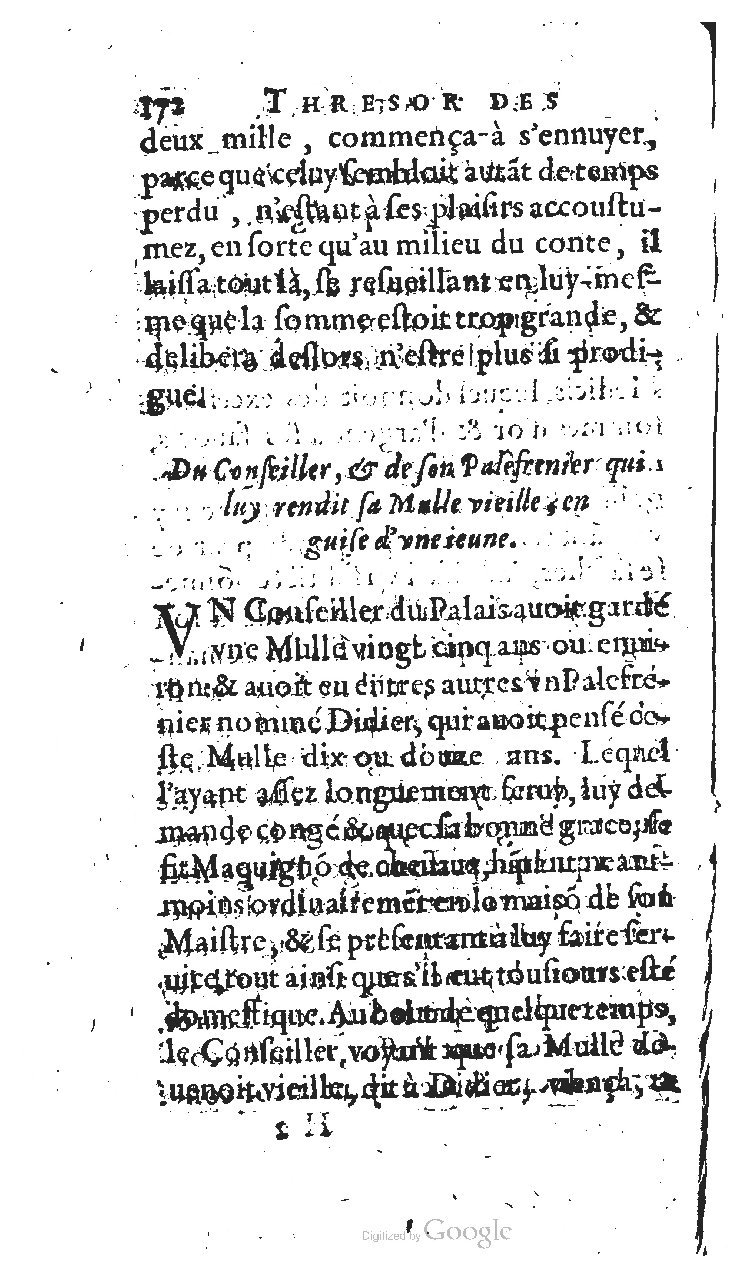 172 THRESOR DES
deux mille, commença-à s'ennuyer,
parce que celuy sembloit autāt de temps
perdu, n'estant à ses plaisirs accoustu-
mez, en sorte qu'au milieu du conte, il
laissa tout là, se resueillant en luy-mes-
me que la somme estoit trop grande, &
delibera deslors n'estre plus si prodi-
gue.
Du Conseiller, & de son Palefrenier qui
luy rendit sa Mulle vieille, en
guise d'vne ieune.
VN Conseiller du Palais auoit gardé
vne Mulle vingt cinq ans ou enui-
ron, & auoit eu entres autres vn Palefre-
nier nommé Didier, qui auoit pensé ce-
ste Mulle dix ou douze ans. Lequel
l'ayant assez longuement seruy, luy de-
mande congé & auec sa bonne grace, se
fit Maquignō de cheuaux, hātant neant-
moins ordinairemēt en la maisō de son
Maistre, & se presentant à luy faire ser-
uice tout ainsi que s'il eut tousiours esté
domestique. Au bout de quelque temps,
le Conseiller, voyant que sa Mulle de-
uenoit vieille, dit à Didier, vien ça, tu
Digitized by Google